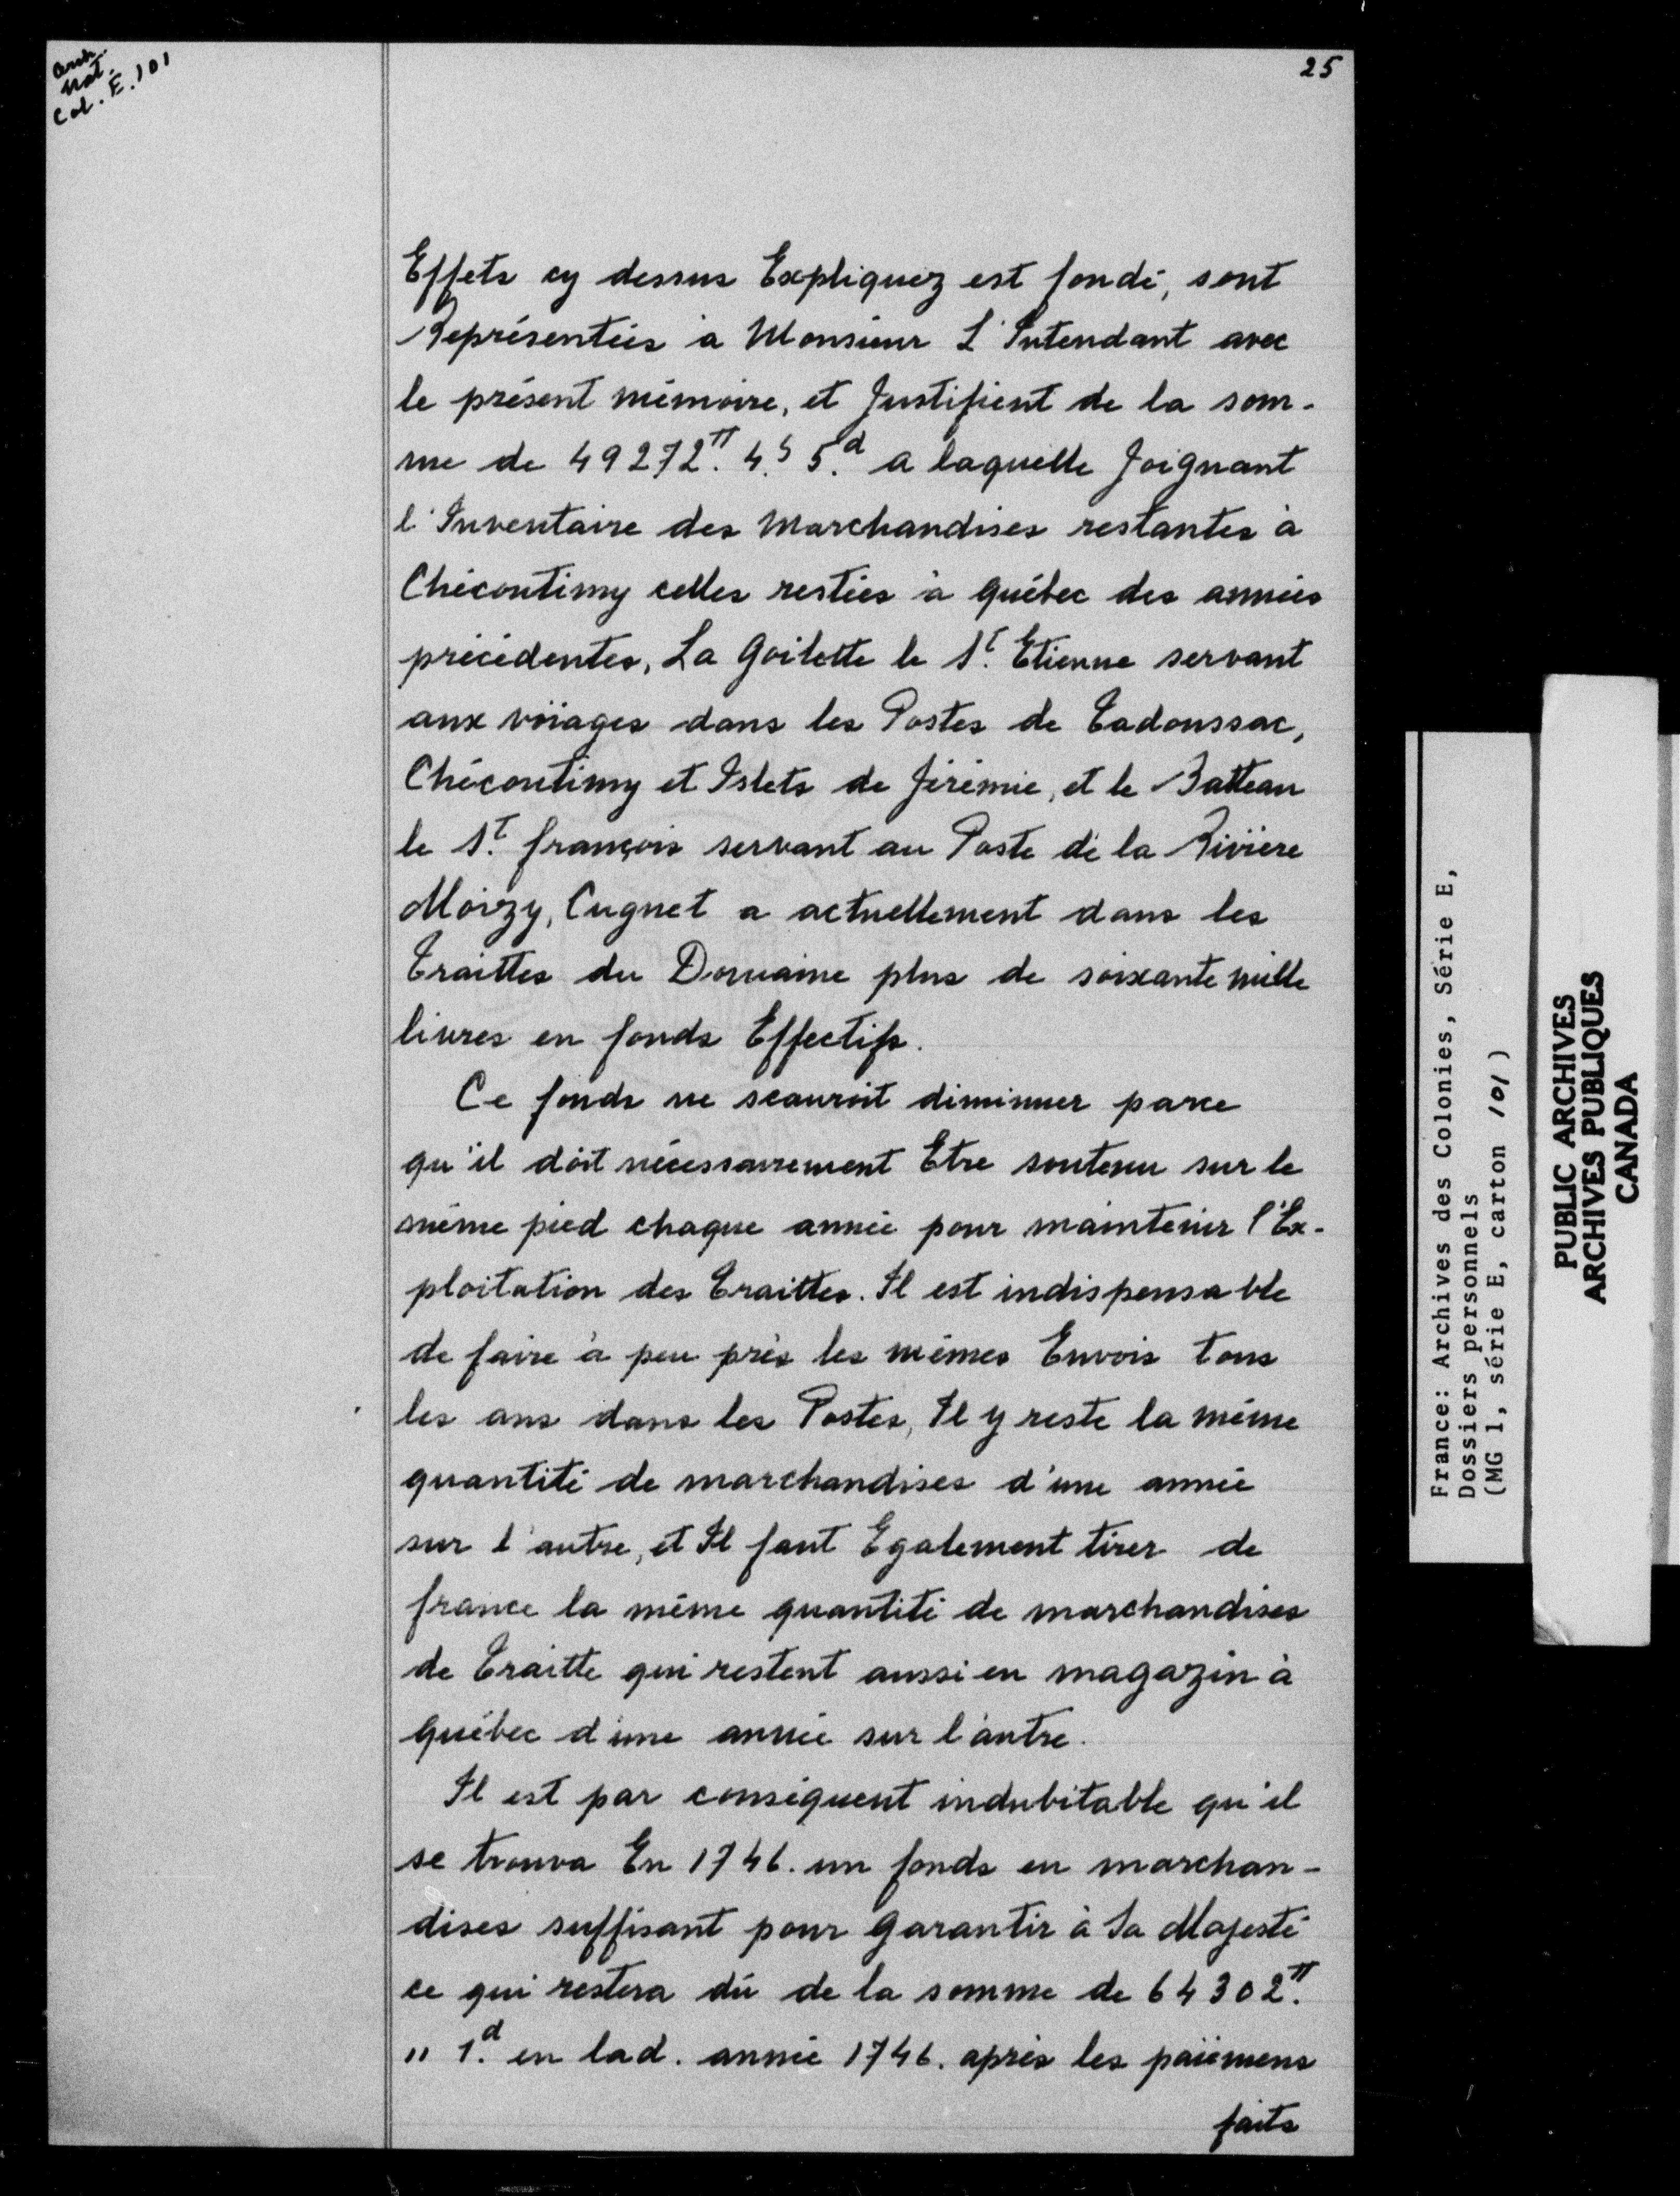 Arch.
Nat.
Col. E. 101
25
Effets cy dessus Expliquez est fondé, sont
Représentées à Monsieur L'Intendant avec
le présent mémoire, et Justifient de la som-
me de 49272.tt 4.s 5.d a laquelle Joignant
l'Inventaire des Marchandises restantes à
Chécoutimy celles restées à Québec des années
précédentes, La Goilette le St. Etienne servant
aux voïages dans les Postes de Tadoussac,
Chécoutimy et Islets de Jérémie, et le Batteau
le St. françois servant au Poste de la Rivière
Moizy, Cugnet a actuellement dans les
Traittes du Domaine plus de soixante mille
livres en fonds Effectifs.
Ce fonds ne scauroit diminuer parce
qu'il doit nécessairement Etre soutenu sur le
même pied chaque année pour maintenir l'Ex-
ploitation des Traittes. Il est indispensable
de faire à peu près les mêmes Envois tous
les ans dans les Postes, Il y reste la même
quantité de marchandises d'une année
sur l'autre, et Il faut Egalement tirer de
france la même quantité de marchandises
de Traitte qui restent aussi en magazin à
Québec d'une année sur l'autre.
Il est par conséquent indubitable qu'il
se trouva En 1746. un fonds en marchan-
dises suffisant pour garantir à Sa Majesté
ce qui restera dû de la somme de 64302.tt
" 1.d en lad. année 1746. après les païemens
faits
France: Archives des Colonies, Série E,
Dossiers personnels
(MG 1, série E, carton 101)
PUBLIC ARCHIVES
ARCHIVES PUBLIQUES
CANADA